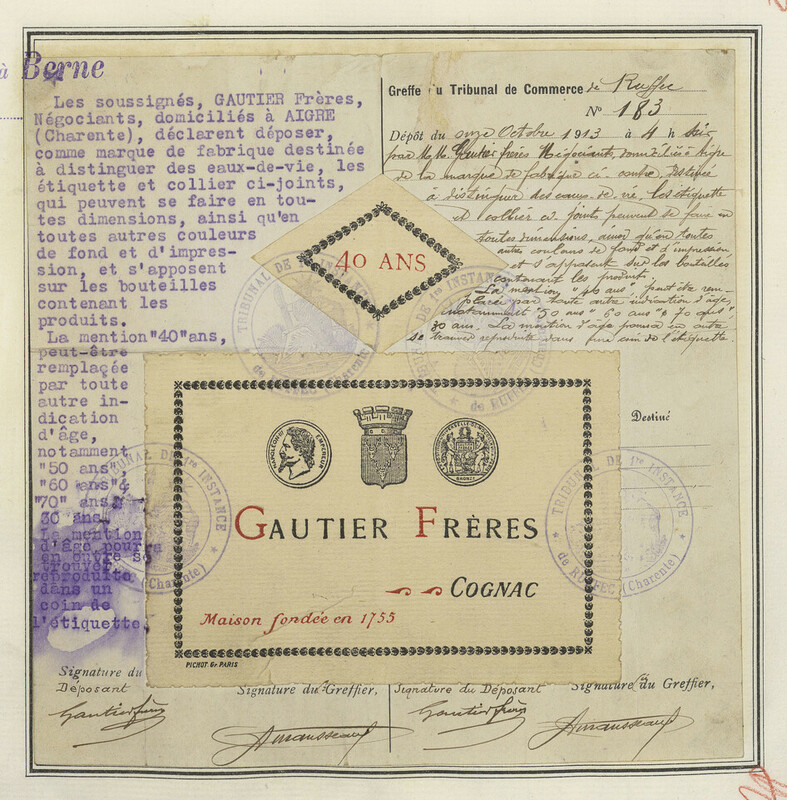 à Berne
Les soussignés, GAUTIER Frères,
Négociants, domiciliés à AIGRE
(Charente), déclarent déposer,
comme marque de fabrique destinée
à distinguer des eaux-de-vie, les
étiquette et collier ci-joints,
qui peuvent se faire en tou-
tes dimensions, ainsi qu'en
toutes autres couleurs
de fond et d'impres-
sion, et s'apposent
sur les bouteilles
contenant les
produits.
La mention "40" ans,
peut-être
remplaçée
par toute
autre in-
dication
d'âge,
notamment
"50 ans"
"60 ans" &
"70" ans,
30 ans.
La mention
d'âge pourra
en outre se
trouver
reproduite
dans un
coin de
l'étiquette
Greffe du Tribunal de Commerce de Ruffec
N° 183
Dépôt du onze Octobre 1913 à 4 h soir
par M.M. Gautier frères Négociants, domiciliés à Aigre
de la marque de fabrique ci contre, destinée
à distinguer des eaux de vie, les étiquette
et collier ci joints peuvent se faire en
toutes dimensions, ainsi qu'en toutes
autres couleurs de fond et d'impression
et s'apposent sur les bouteilles
contenant les produits.
La mention "40 ans" peut être rem-
placée par toute autre indication d'âge,
notamment "50 ans" 60 ans" & 70 ans"
30 ans. La mention d'âge pourra en outre
se trouver reproduite dans un coin de l'étiquette.
40 ANS
TRIBUNAL DE INSTANCE
de RUFFEC (Charente)
DE 1re INSTANCE
de RUFFEC
Destiné
NAPOLEON III EMPEREUR
GAUTIER FRÈRES
COGNAC
Maison fondée en 1755
PICHOT. Gr. PARIS
TRIBUNAL DE 1re INSTANCE
(Charente)
TRIBUNAL DE 1re INSTANCE
de RUFFEC (Charente)
Signature du Déposant
Signature du Greffier,
Signature du Déposant
Signature du Greffier,
Gautier frères
Gautier frères